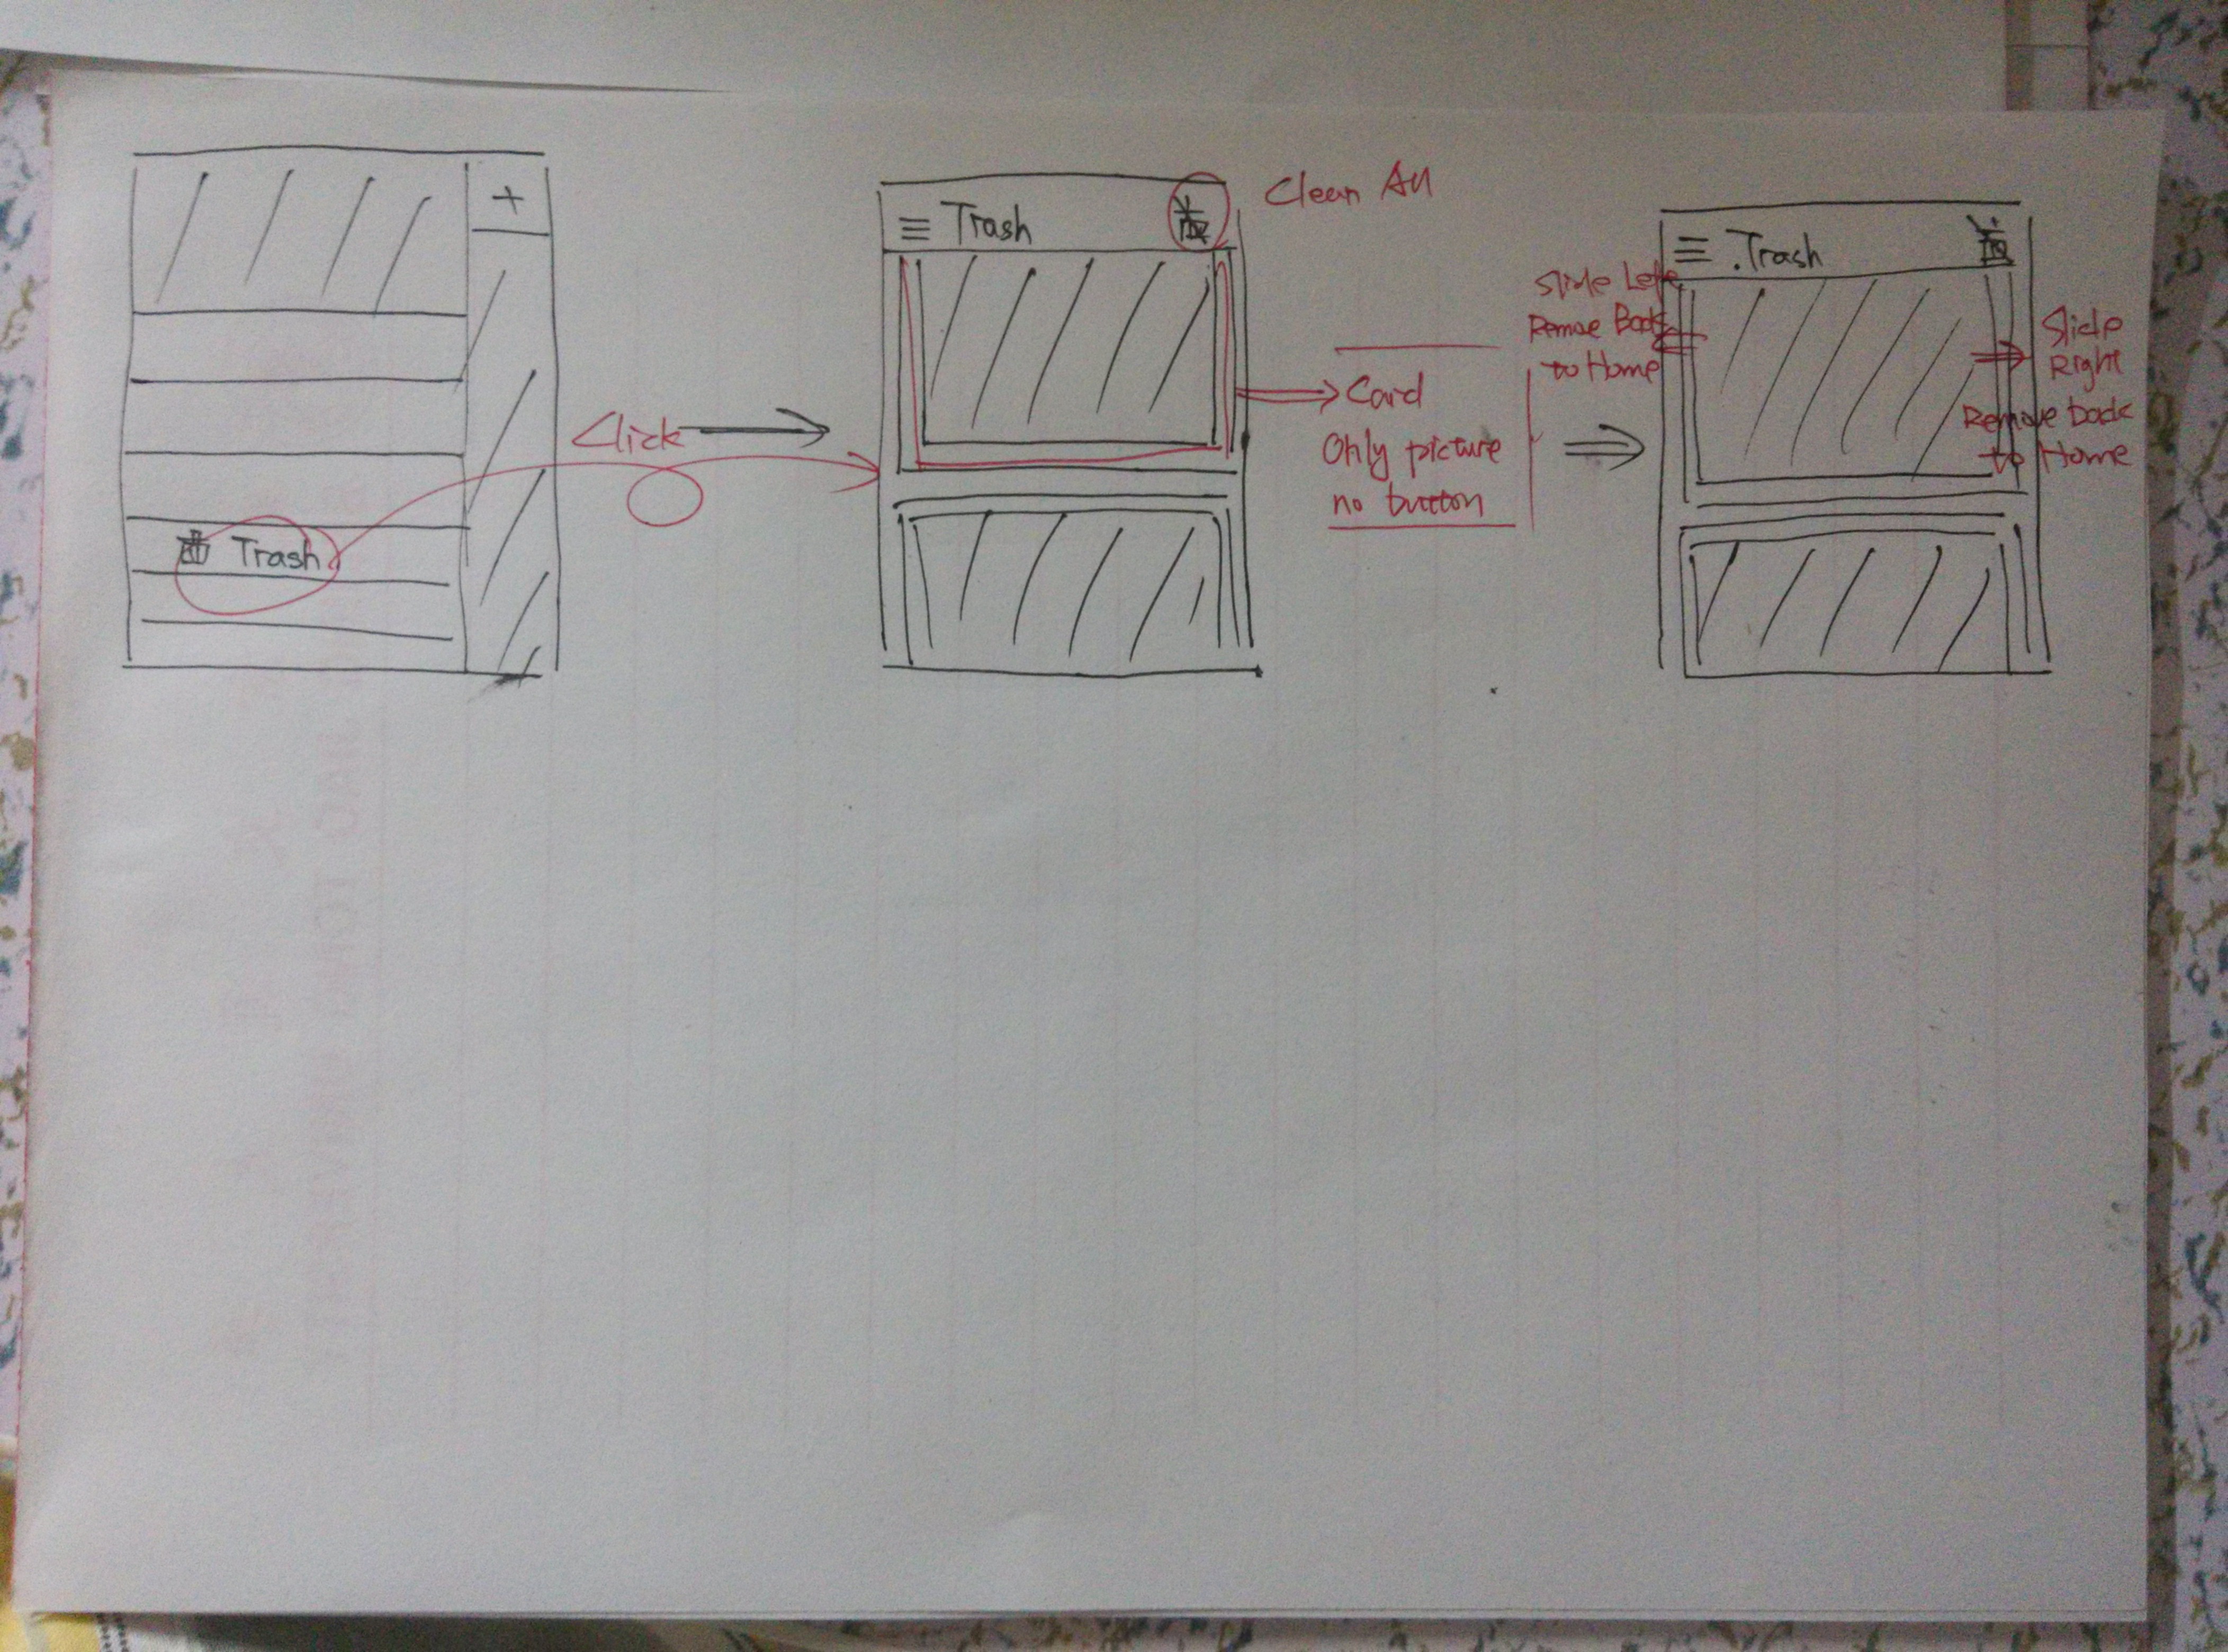 +
Trash
Click
Trash
Clean All
Card
Only picture
no button
Trash
Slide Left
Remove Back
to Home
Slide
Right
Remove back
to Home